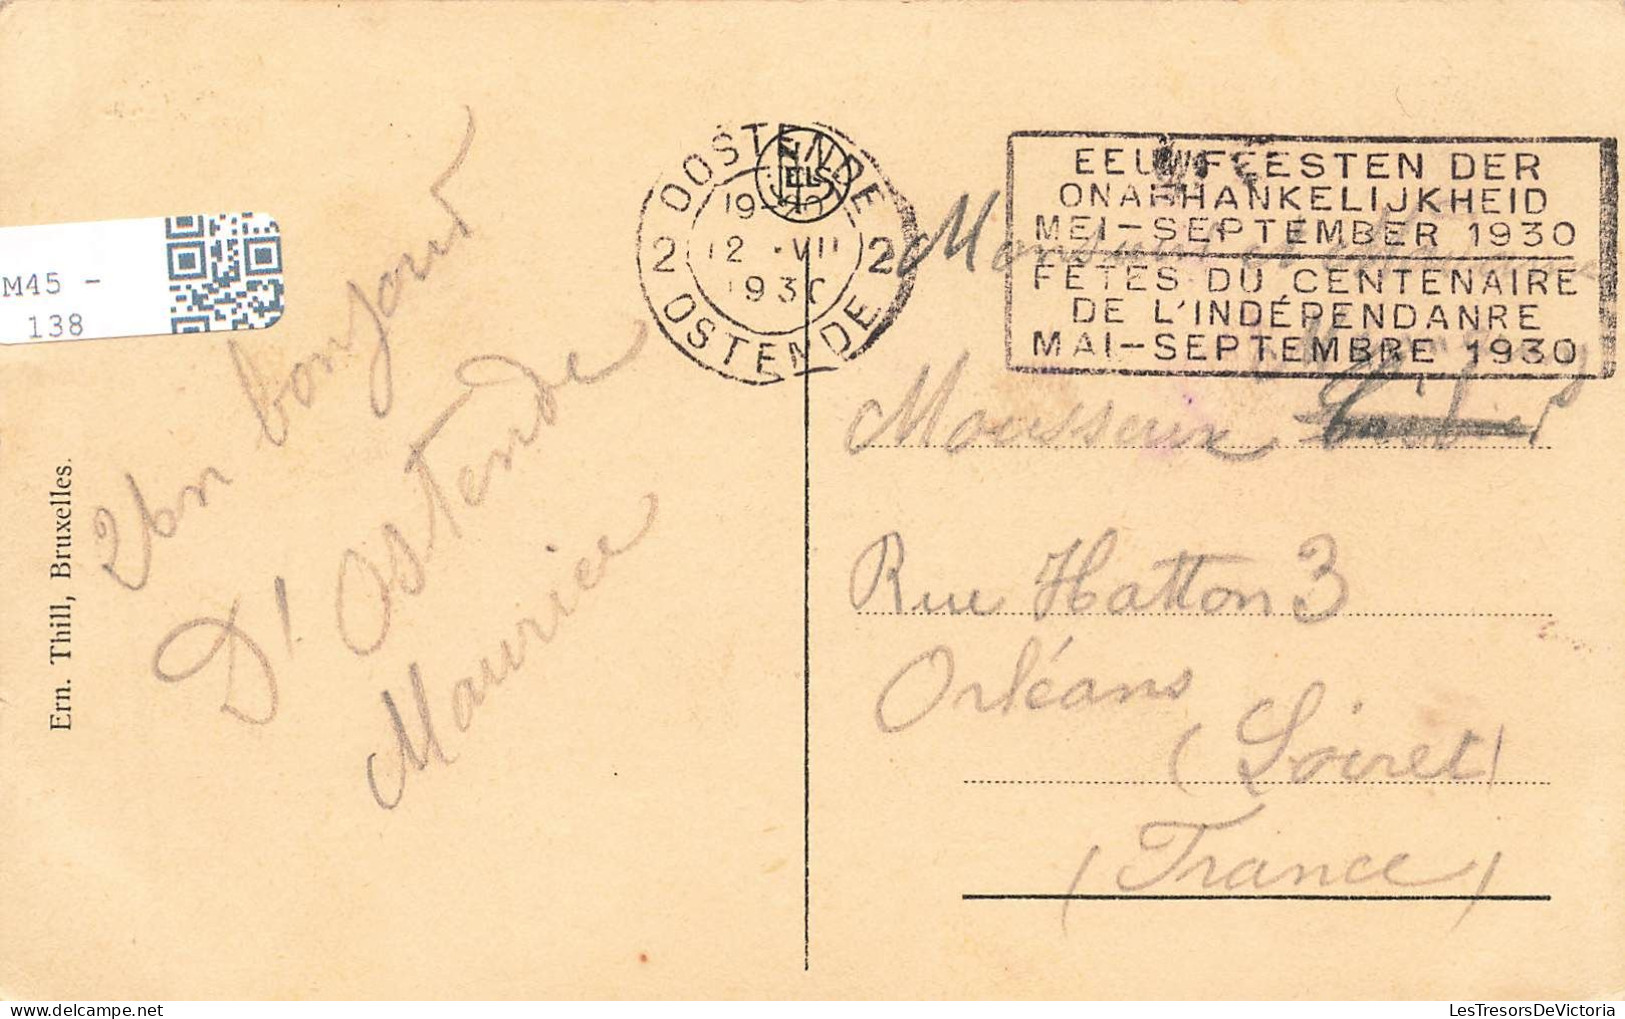 M45 -
138
Ern. Thill, Bruxelles.
bonjour
D' Ostende
Maurice
OOSTENDE
19-20
12 VII
193
2 2
OSTENDE
NELS
EEUWFEESTEN DER
ONAFHANKELIJKHEID
MEI-SEPTEMBER 1930
FÊTES DU CENTENAIRE
DE L'INDÉPENDANRE
MAI-SEPTEMBRE 1930
Monsieur et Madame
Mousseux
Rue Hatton 3
Orléans
(Loiret)
(France)
LesTresorsDeVictoria.com